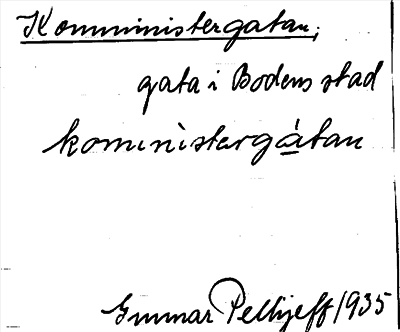 Kommministergatan,
gata i Bodens stad
komìnìstergàtan
Gunnar Pellijeff 1935